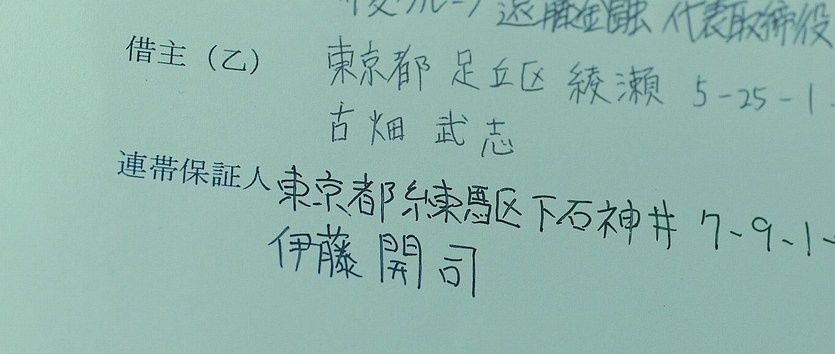 遠藤金融 代表取締役
借主（乙） 東京都 足立区 綾瀬 5-25-1
古畑 武志
連帯保証人 東京都練馬区下石神井 7-9-1-
伊藤 開司